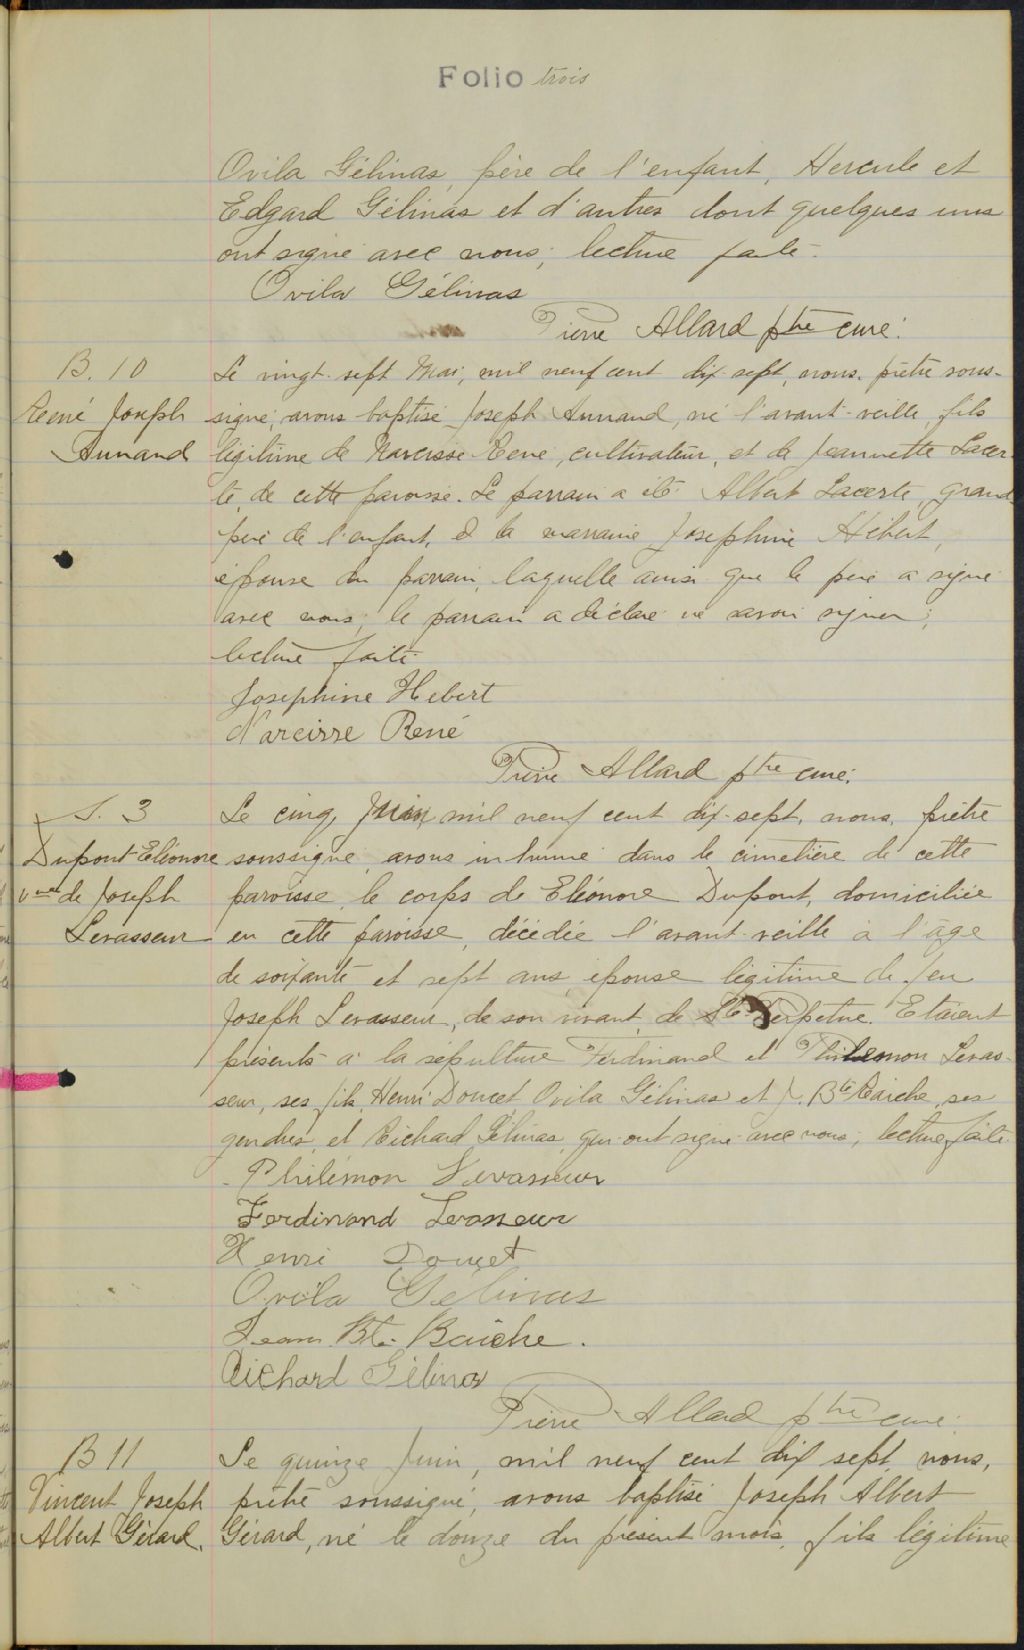 Folio trois
Ovila Gélinas, père de l'enfant, Hercule et
Edgard Gélinas et d'autres dont quelques uns
ont signé avec nous; lecture faite.
Ovila Gélinas
Pierre Allard ptre curé.
B. 10
René Joseph
Armand
Le vingt-sept Mai, mil neuf cent dix-sept, nous, prêtre sous-
signé, avons baptisé Joseph Armand, né l'avant-veille, fils
légitime de Narcisse René, cultivateur, et de Jeannette Lacer-
te, de cette paroisse. Le parrain a été Albert Lacerte, grand
père de l'enfant, et la marraine Josephine Hébert,
épouse du parrain, laquelle ainsi que le père a signé
avec nous; le parrain a déclaré ne savoir signer;
lecture faite.
Josephine Hebert
Narcisse René
Pierre Allard ptre curé.
S. 3
Dupont Eléonore
vve de Joseph
Levasseur
Le cinq Juin, mil neuf cent dix-sept, nous, prêtre
soussigné, avons inhumé dans le cimetière de cette
paroisse, le corps de Eléonore Dupont, domiciliée
en cette paroisse, décédée l'avant-veille à l'âge
de soixante et sept ans, épouse légitime de feu
Joseph Levasseur, de son vivant, de Ste Perpétue. Etaient
présents à la sépulture Ferdinand et Philemon Levas-
seur, ses fils, Henri Doucet Ovila Gélinas et J. Bte Baiche, ses
gendres, et Richard Gélinas, qui ont signé avec nous; lecture faite.
Philémon Levasseur
Ferdinand Levasseur
Henri Doucet
Ovila Gelinas
Jean Bte. Baiche.
Richard Gélinas
Pierre Allard ptre curé.
B 11
Vincent Joseph
Albert Gérard.
Le quinze Juin, mil neuf cent dix sept, nous,
prêtre soussigné, avons baptisé Joseph Albert
Gérard, né le douze du présent mois, fils légitime